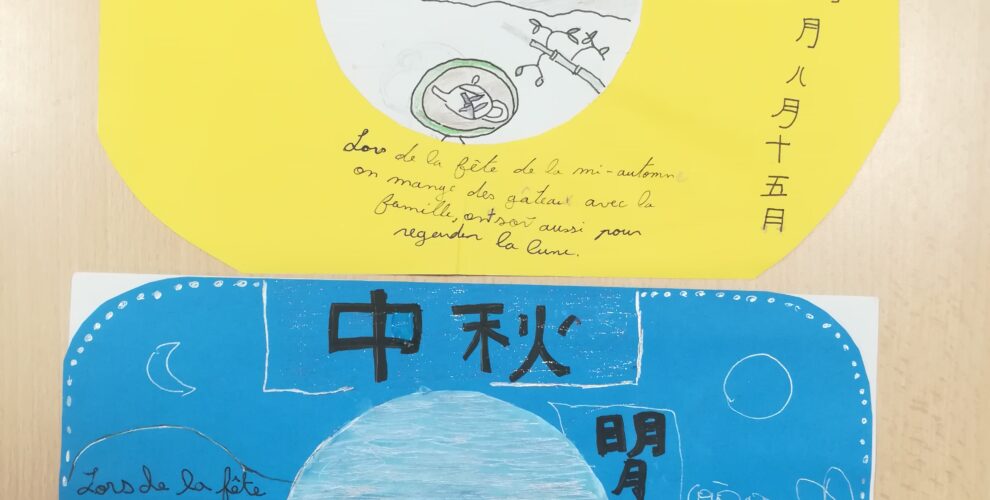 月八月十五月
Lors de la fête de la mi-automne
on mange des gâteaux avec la
famille, aussi pour
regarder la lune.
中秋
明
月
Lors de la fête